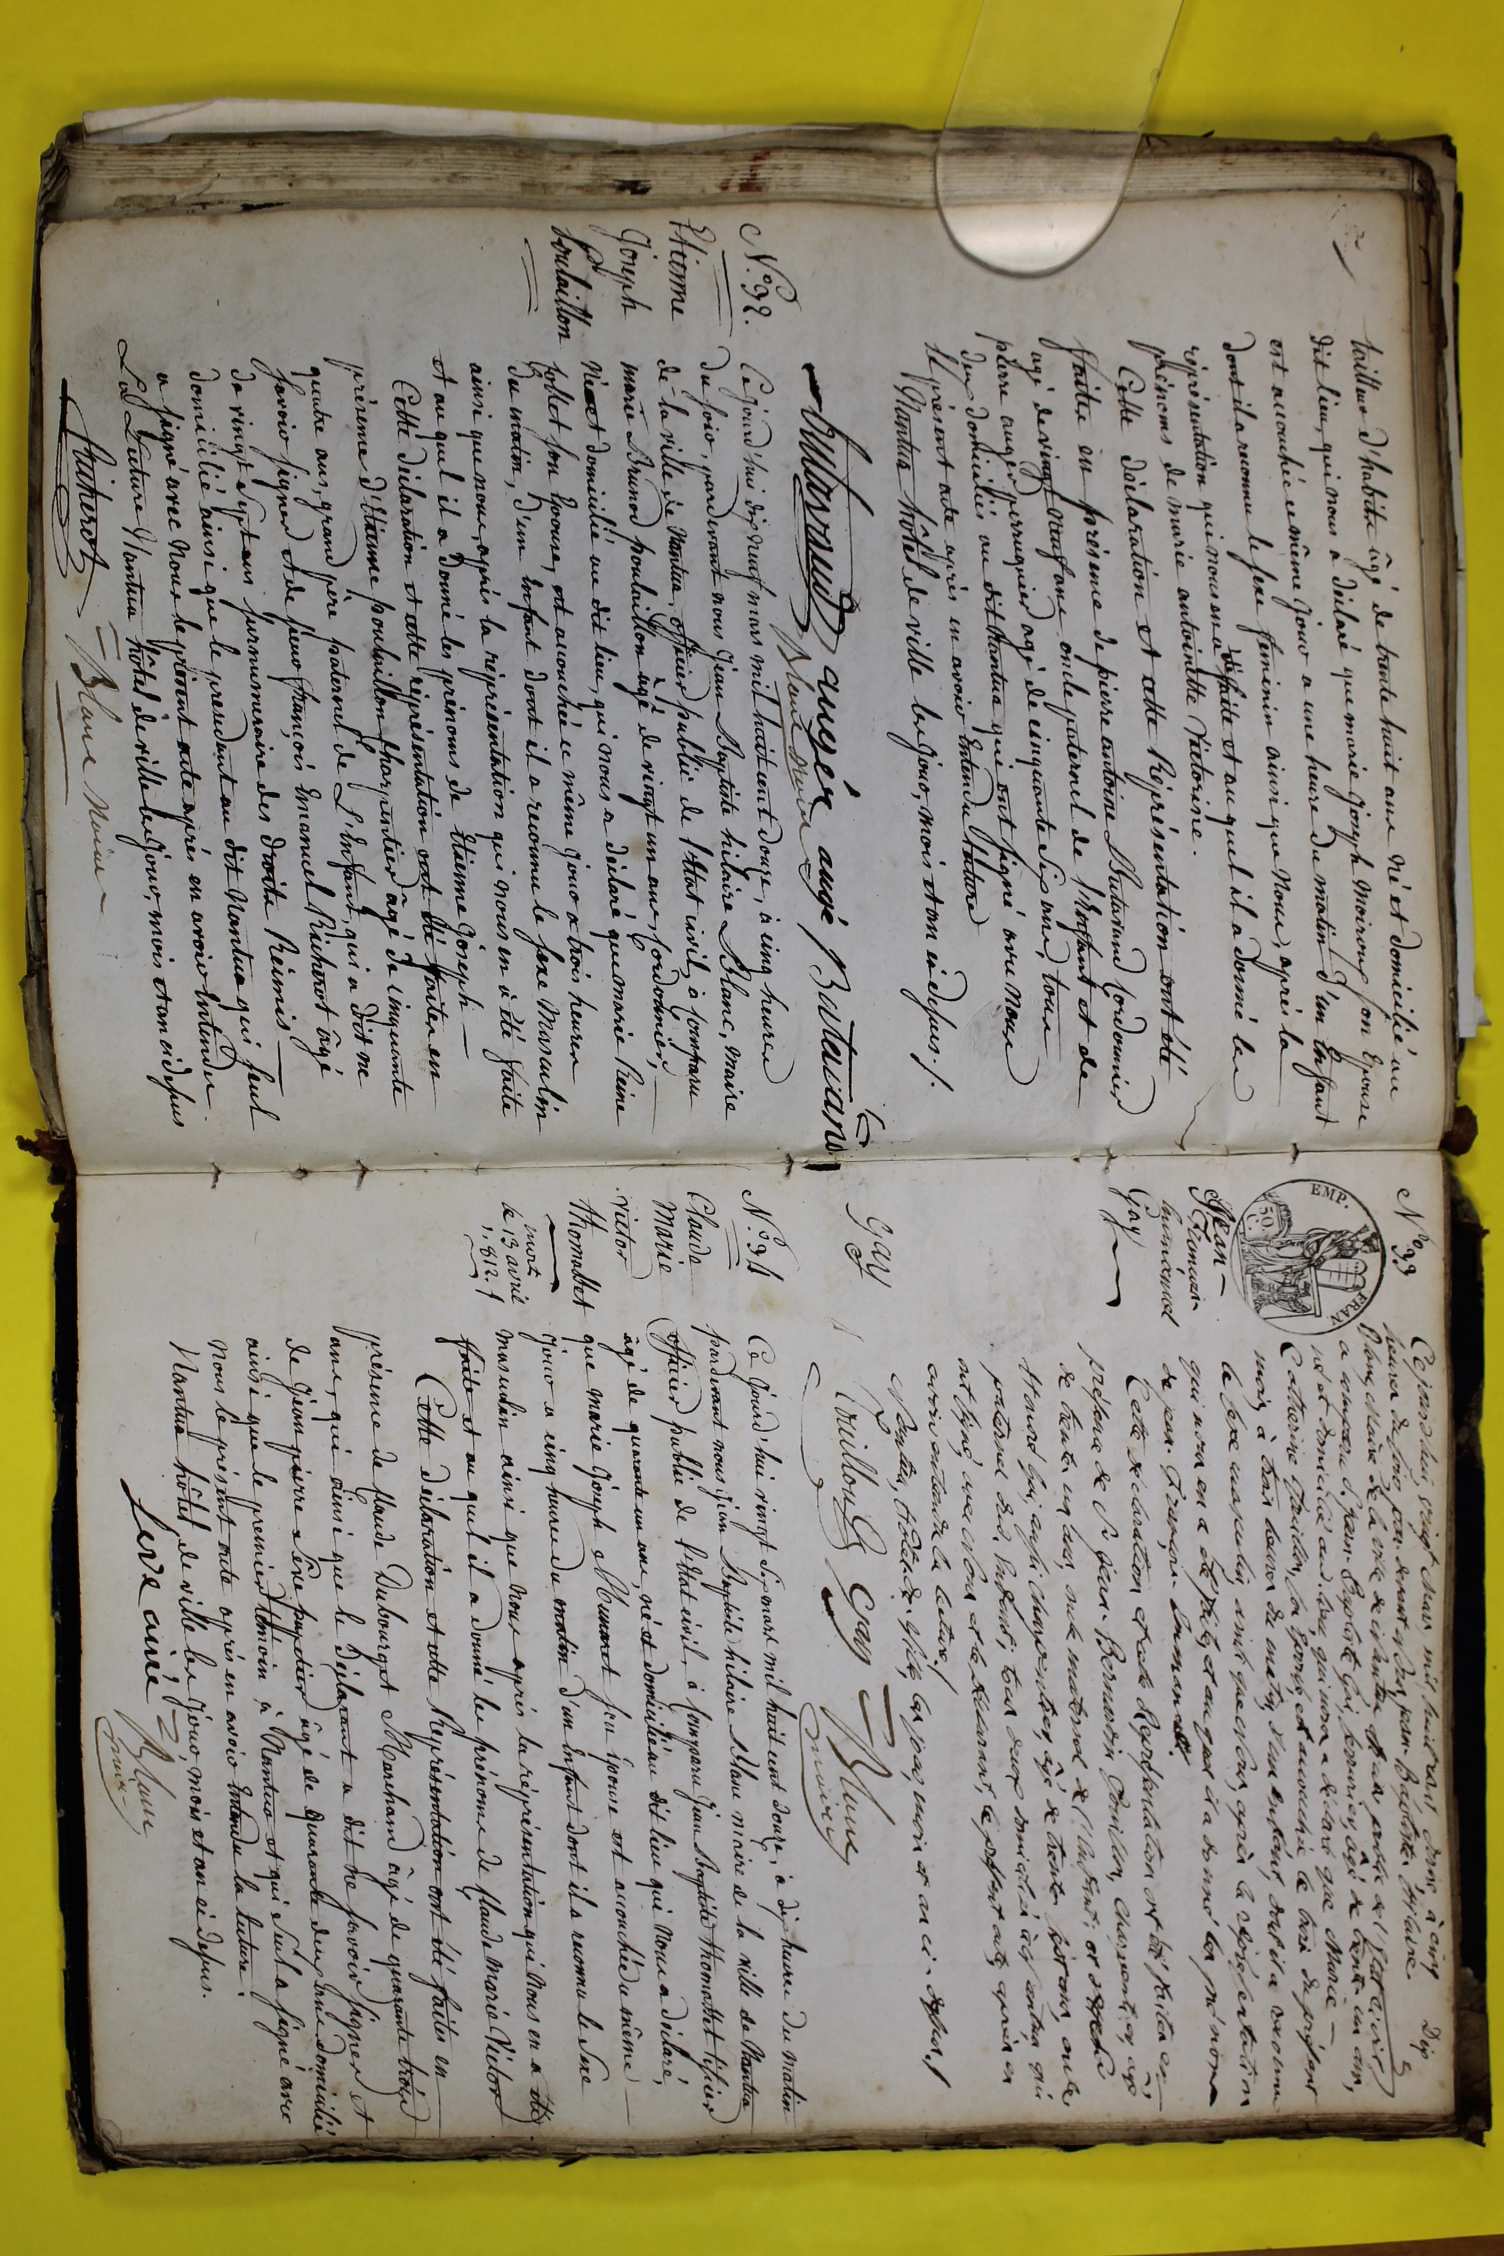 tailleur d'habits âgé de trente huit ans né et domicilié au
dit lieu, qui nous a déclaré que marie Joseph moiroux son Epouse
est accouchée ce même jour a une heure du matin d'un Enfant
dont il a reconnu le sexe feminin ainsi que Nous, après la
réprésentation qui nous en a été faite et au quel il a donné les
prénoms de marie antoinette Victorine.
Cette déclaration et cette Réprésentation ont été
faites en présence de pierre antoine Butavand Cordonnier
agé de vingt Neuf ans oncle paternel de l'Enfant et de
pierre auger perruquier agé de cinquante six ans, tous
deux domiciliés au dit Nantua qui ont signé avec Nous
le présent acte après en avoir Entendu lecture
Nantua hôtel de ville les Jour, mois et an ci dessus./.
Butavand augér augé Butavand
Blanc maire
N.º 92.
Etienne
Joseph
poulaillon
Ce Jourd'hui dix Neuf mars mil huit cent douze, à cinq heures
du soir, pardevant nous Jean Baptiste hilaire Blanc, Maire
de la ville de Nantua, officier public de l'Etat civil, à Comparu
marie Brunod poulaillon âgé de vingt un ans, Cordonnier,
Né et domicilié au dit lieu, qui nous a déclaré que marie Reine
follet son Epouse, est accouchée ce même Jour a trois heures
du matin, d'un Enfant dont il a reconnu le sexe Masculin
ainsi que nous, après la réprésentation qui nous en a été faite
et au quel il a donné les prénoms de Etienne Joseph
Cette déclaration et cette réprésentation ont été faites en
présence d'Etienne poulaillon Charpentier âgé de cinquante
quatre ans, grand père paternel de L'Enfant, qui a dit ne
savoir signer et de sieur françois Emanuel Richerot âgé
de vingt Sept ans surnumeraire des droits Réunis
domicilié ainsi que le précédent au dit Nantua qui seul
a signé avec Nous le présent acte après en avoir Entendu
La Lecture Nantua hôtel de ville les jour, mois et an ci dessus
Richerot = Blanc maire
N.º 93
EMP. FRAN.
50. C.
Jean-
François-
Emmánuel
Gay
Gay
Cejourdhui, vingt Mars mil huit cent douze, à cinq
heures du soir, par devant Nous, jean-Baptiste hylaire
Blanc, Maire de la ville de Nantua officier public de l'Etat civil,
a comparu S. jean-Baptiste Gai, âgé de trente un ans,
né et domicilié aud. lieu, qui nous a déclaré que Marie-
Catherine Touillon, sa épouse, est accouchée le trois du présent
mois, à trois heures du matin, d'un enfant, dont il a reconnu
le sexe masculin, ainsi que nous, après la réprésentation
qui nous en a été faite, et auquel il a donné les prénoms
de jean-François-Emmanuel.
Cette déclaration et cette Représentation ont été faites en
présence de S. jean-Bernardin Touillon, charpentier, agé
de trente un ans, oncle maternel de l'Enfant, et
Gai, aussi charpentier, âgé de trente ans, oncle
paternel dud. Enfant, tous deux domiciliés à Nantua qui
ont signé avec Nous et le déclarant, le présent acte, après en
avoir entendu la lecture./
Nantua, Hôtel de ville, les jour, mois et an ci-dessus./
Touillon Gay = Blanc
maire
N.º 94
Claude
Marie
Victor
thomasset
mort
le 13 avril
1,812.
Ce Jourd'hui vingt six mars mil huit cent douze, à dix heures du matin
pardevant nous Jean Baptiste hilaire Blanc maire de la ville de Nantua
officier public de l'état civil, à Comparu Jean Baptiste thomasset
âgé de quarant un an, né et domicilié au dit lieu qui Nous a déclaré,
que marie Joseph Munaret son Epouse est accouchée du même
Jour a cinq heures du matin d'un Enfant dont il a reconnu le sexe
masculin ainsi que nous après la réprésentation qui nous en a été
faite et au quel il a donné les prénoms de Claude Marie Victor
Cette déclaration et cette Réprésentation ont été faites en
présence de Claude Dubourget Marchand âgé de quarante trois
ans, qui ainsi que le Déclarant a dit ne savoir signer et
de Jean pierre Sève papetier âgé de quarante deux ans domicilié
ainsi que le premier témoin à Nantua et qui seul a signé avec
Nous le présent acte après en avoir Entendu la lecture.
Nantua hôtel de ville les Jour mois et an ci dessus.
Seve ainé = Blanc
maire